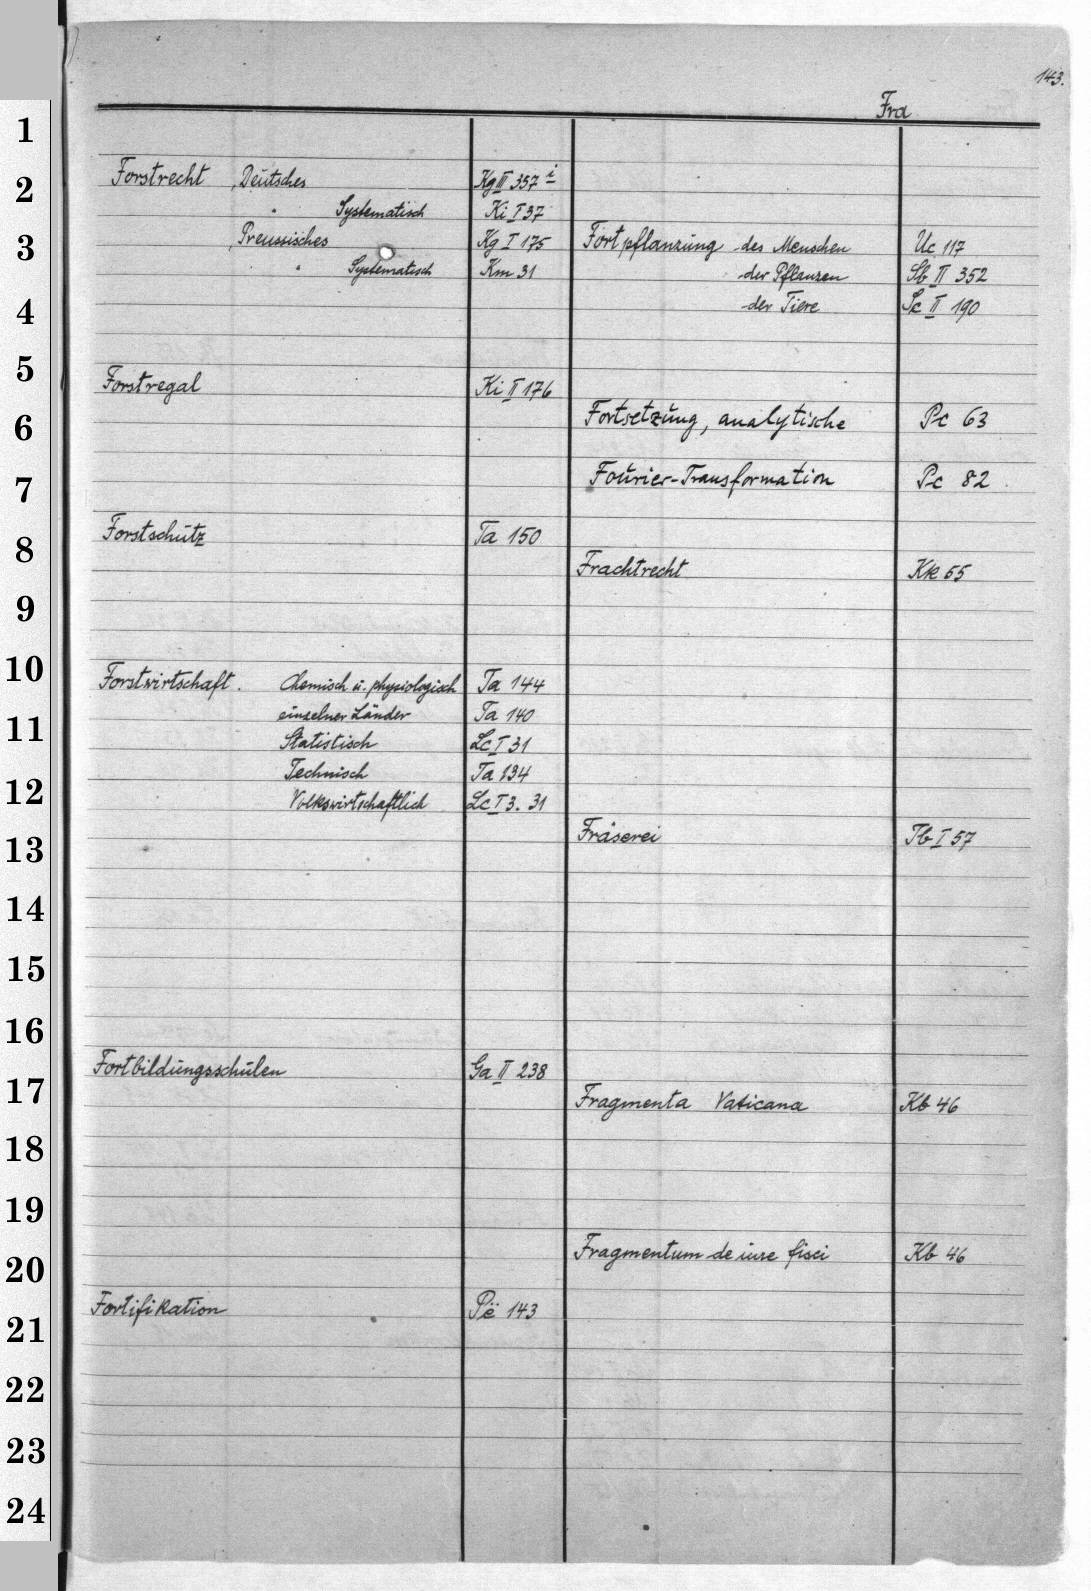 143.
Fra
1
2
3
4
5
6
7
8
9
10
11
12
13
14
15
16
17
18
19
20
21
22
23
24
Forstrecht, Deutsches Kg III 357 i
" Systematisch Ki I 37
Preussisches Kg I 175
" Systematisch Km 31
Forstregal Ki II 176
Forstschutz Ta 150
Forstwirtschaft. Chemisch u. physiologisch Ta 144
einzelner Länder Ta 140
Statistisch Lc I 31
Technisch Ta 134
Volkswirtschaftlich Lc I 3. 31
Fortbildungsschulen Ga II 238
Fortifikation Pë 143
Fortpflanzung des Menschen Uc 117
der Pflanzen Sb II 352
der Tiere Sc II 190
Fortsetzung, analytische Pc 63
Fourier-Transformation Pc 82
Frachtrecht Kk 55
Fräserei Tb I 57
Fragmenta Vaticana Kb 46
Fragmentum de iure fisci Kb 46